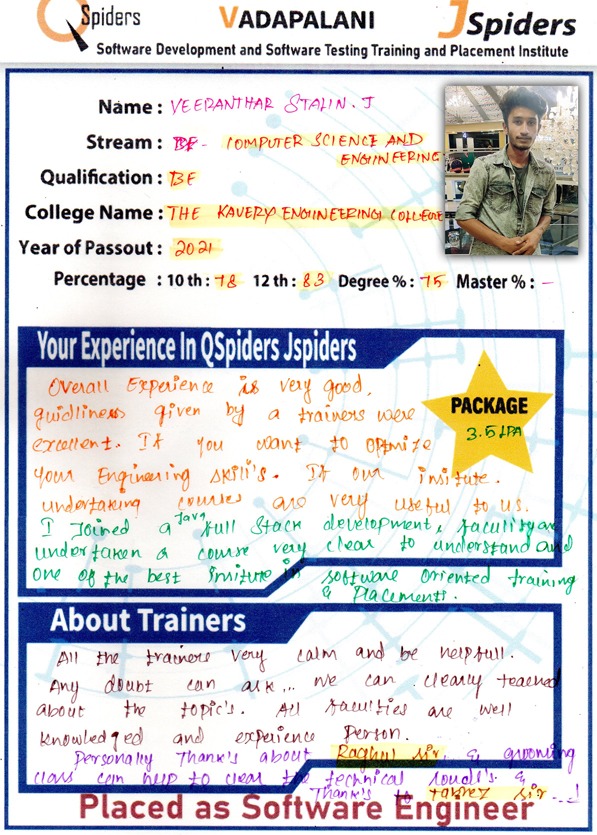 QSpiders VADAPALANI JSpiders
Software Development and Software Testing Training and Placement Institute
Name : VEERANTHAR STALIN. J
Stream : BE - COMPUTER SCIENCE AND
ENGINEERING
Qualification : BE
College Name : THE KAVERY ENGINEERING COLLEGE
Year of Passout : 2021
Percentage : 10 th : 78 12 th : 83 Degree % : 75 Master % : -
Your Experience In QSpiders Jspiders
PACKAGE
3.5 LPA
Overall Experience is very good,
guidliness given by a trainers were
excellent. If you want to optmize
your Engineering skill's. If our insitute.
undertaking courses are very useful to us.
I Joined a Java full stack development, faculity are
undertaken a course very clear to understand and
one of the best insitute in software oriented training
& Placements.
About Trainers
All the trainers very calm and be helpfull.
Any doubt can ask... we can clearly teached
about the topic's. All faculties are well
knowledged and experience person.
Personally Thank's about Raghul sir, & grooming
class can help to clear the technical round's &
Thank's to tabrez sir ...!
Placed as Software Engineer